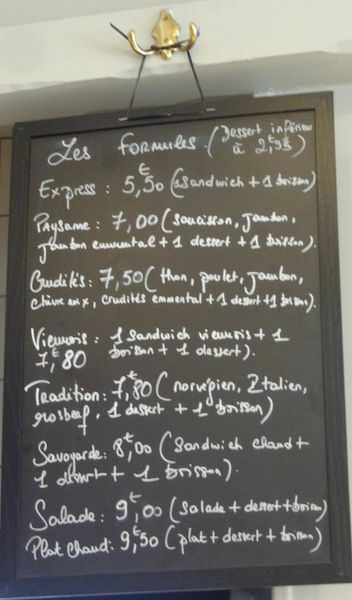 Les formules. (Dessert inférieur
à 2,95€)
Express : 5,50€ (1 sandwich + 1 boisson)
Paysame : 7,00 (saucisson, jambon,
jambon emmental + 1 dessert + 1 boisson).
Crudités : 7,50 (thon, poulet, jambon,
chèvre, crudités emmental + 1 dessert + 1 boisson).
Viennois : 1 sandwich viennois + 1
7,80 boisson + 1 dessert).
Tradition : 7,80€ (norvégien, Italien,
rosbeef, 1 dessert + 1 boisson)
Savoyarde : 8,00€ (Sandwich chaud +
1 dessert + 1 boisson).
Salade : 9,00€ (salade + dessert + boisson)
Plat chaud : 9,50€ (plat + dessert + boisson)